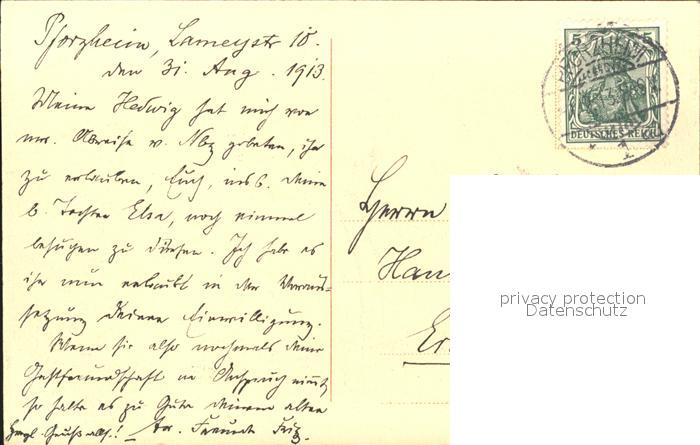 Pforzheim, Lameystr 10.
den 31. Aug. 1913.
Meine Hedwig hat mich vor
Abreise v. Nbg gebeten, ihr
zu erlauben, Euch, insb. deine
l. Tochter Elsa, noch einmal
besuchen zu dürfen. Ich habe es
ihr nun erlaubt in der Voraus-
setzung Deiner Einwilligung.
Wenn sie also nochmals deine
Gastfreundschaft in Anspruch nimmt,
so halte es zu Gute deinem alten
Herzl. Gruß alls.! Freunde Fritz.
5 5
PFORZHEIM
DEUTSCHES REICH
1
Herrn
Han
Er
privacy protection
Datenschutz